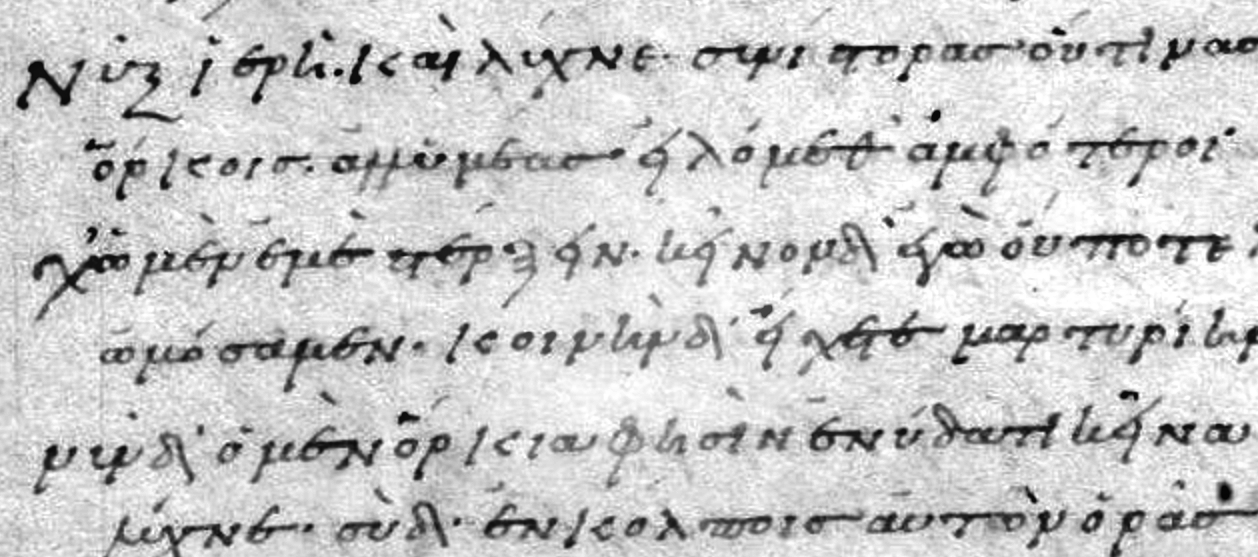 Νὺξ ἱερὴ· καὶ λύχνε· συνίστορας οὔτινας
ὅρκοις· ἀλλ' ὑμέας εἱλόμεθ' ἀμφότεροι
χὠ μὲν ἐμὲ στέρξειν· κεῖνον δ' ἐγὼ οὔποτε
ὠμόσαμεν· κοινὴν δ' εἴχετε μαρτυρίην
νῦν δ' ὁ μὲν ὅρκια φησὶν ἐν ὕδατι κεῖνα
λύχνε· σὺ δ' ἐν κόλποις αὐτὸν ὁρᾶς